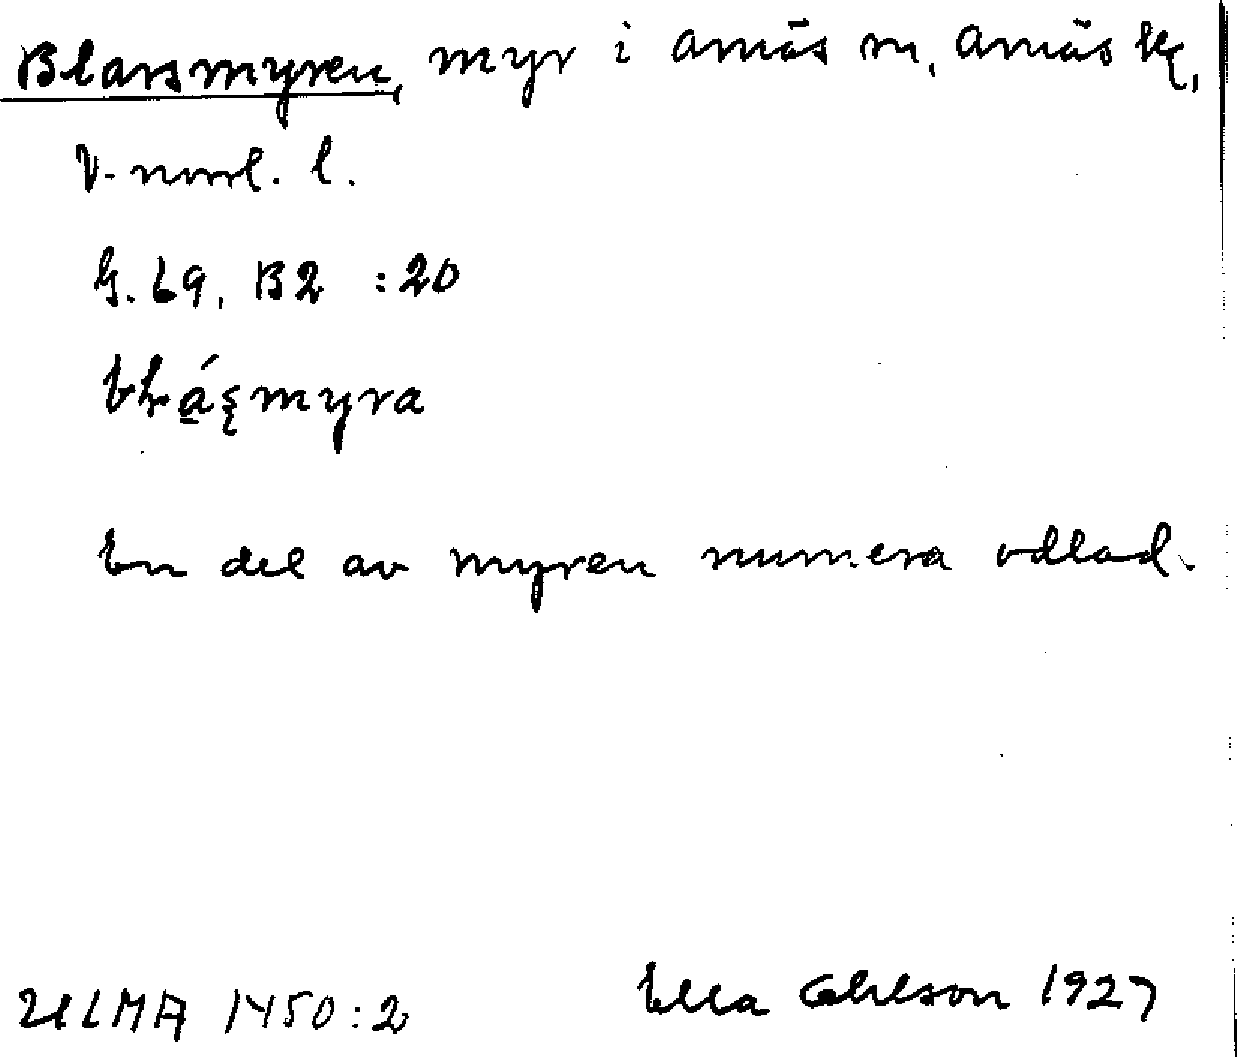 Blarsmyren, myr i Arnäs sn, Arnäs sk,
V-norrl. l.
G. 69, B2 :20
En del av myren numera odlad.
ULMA 1450:2 Ella Ohlson 1927